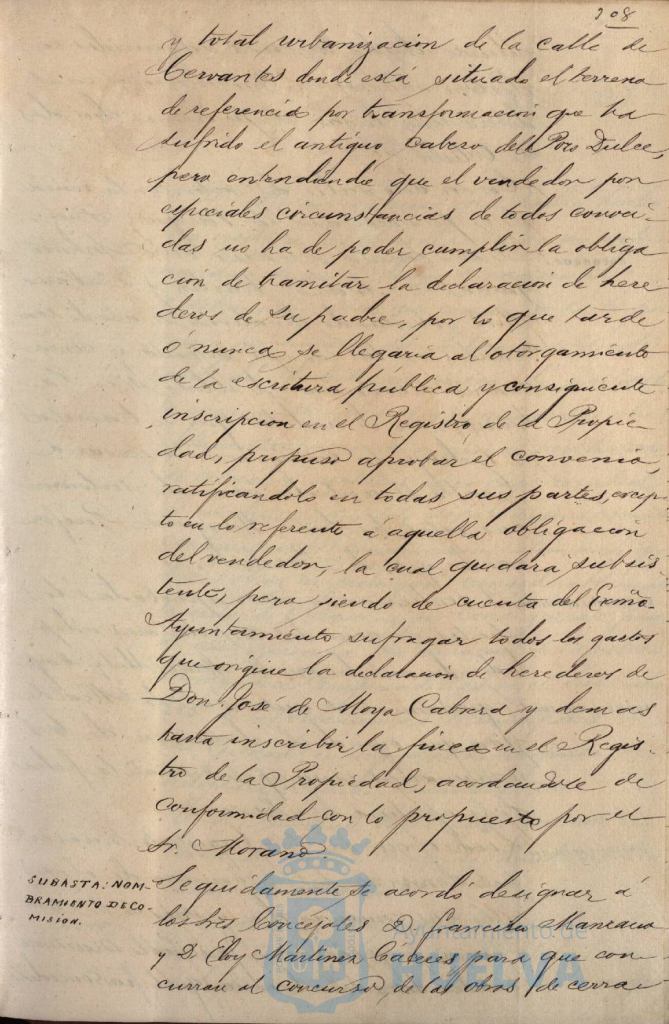 208
y total urbanización de la calle de
Cervantes donde está situado el terreno
de referencia por transformación que ha
sufrido el antiguo Cabezo del Pozo Dulce,
pero entendiendo que el vendedor por
especiales circunstancias de todos conoci-
das no ha de poder cumplir la obliga
ción de tramitar la declaración de here
deros de su padre, por lo que tarde
o nunca se llegaría al otorgamiento
de la escritura pública y consiguiente
inscripción en el Registro de la Propie-
dad, propuso aprobar el convenio,
ratificándolo en todas sus partes, excep-
to en lo referente á aquella obligación
del vendedor, la cual quedará subsis-
tente, pero siendo de cuenta del Exmo.
Ayuntamiento sufragar todos los gastos
que origine la declaración de herederos de
Don José de Moya Cabrera y demas
hasta inscribir la finca en el Regis-
tro de la Propiedad, acordandose de
conformidad con lo propuesto por el
Sr. Morano.
SUBASTA: NOM-
BRAMIENTO DE CO-
MISION.
Seguidamente se acordó designar á
los Sres Concejales D. Francisco Manzano
y D Eloy Martinez Cáceres para que con
curran al concurso de las obras de cerra-
Ayuntamiento de
HUELVA